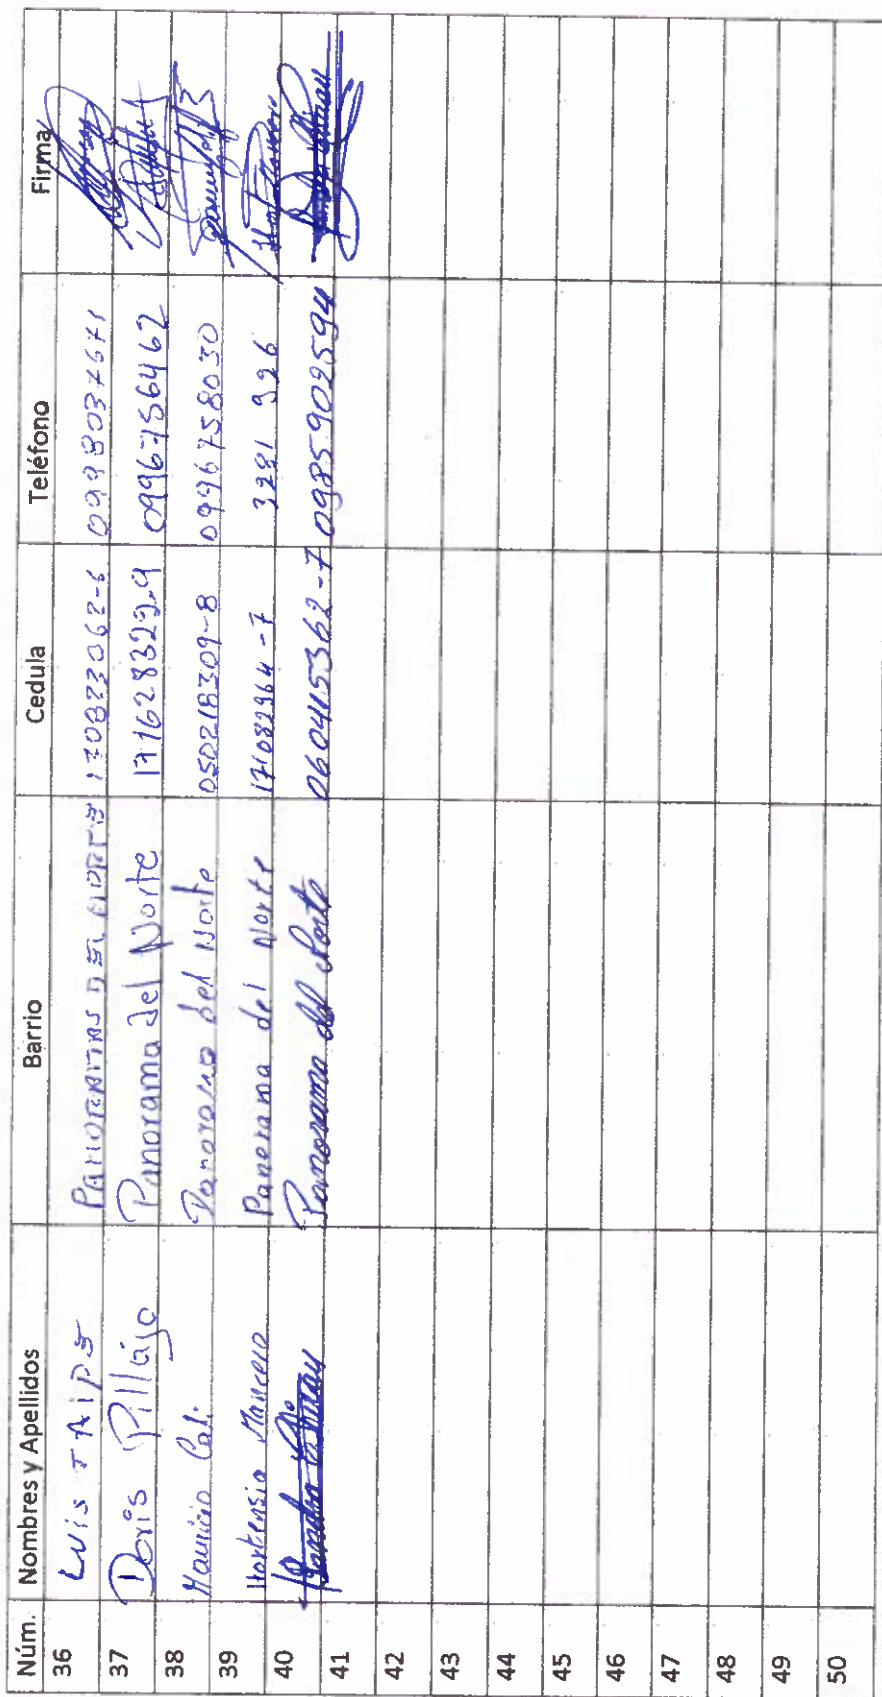 Núm. Nombres y Apellidos Barrio Cedula Teléfono Firma
36 LUIS TAIPE PANORAMAS DEL NORTE 170823062-6 0998037671
37 Doris Pillajo Panorama del Norte 171628329-9 0996756462
38 Mauricio Cali Panorama del Norte 050218309-8 0996758030
39 Hortensia Mancero Panorama del Norte 171082964-7 3281 926
40 Sandra Panorama del Norte 060415362-7 0985902594
41
42
43
44
45
46
47
48
49
50